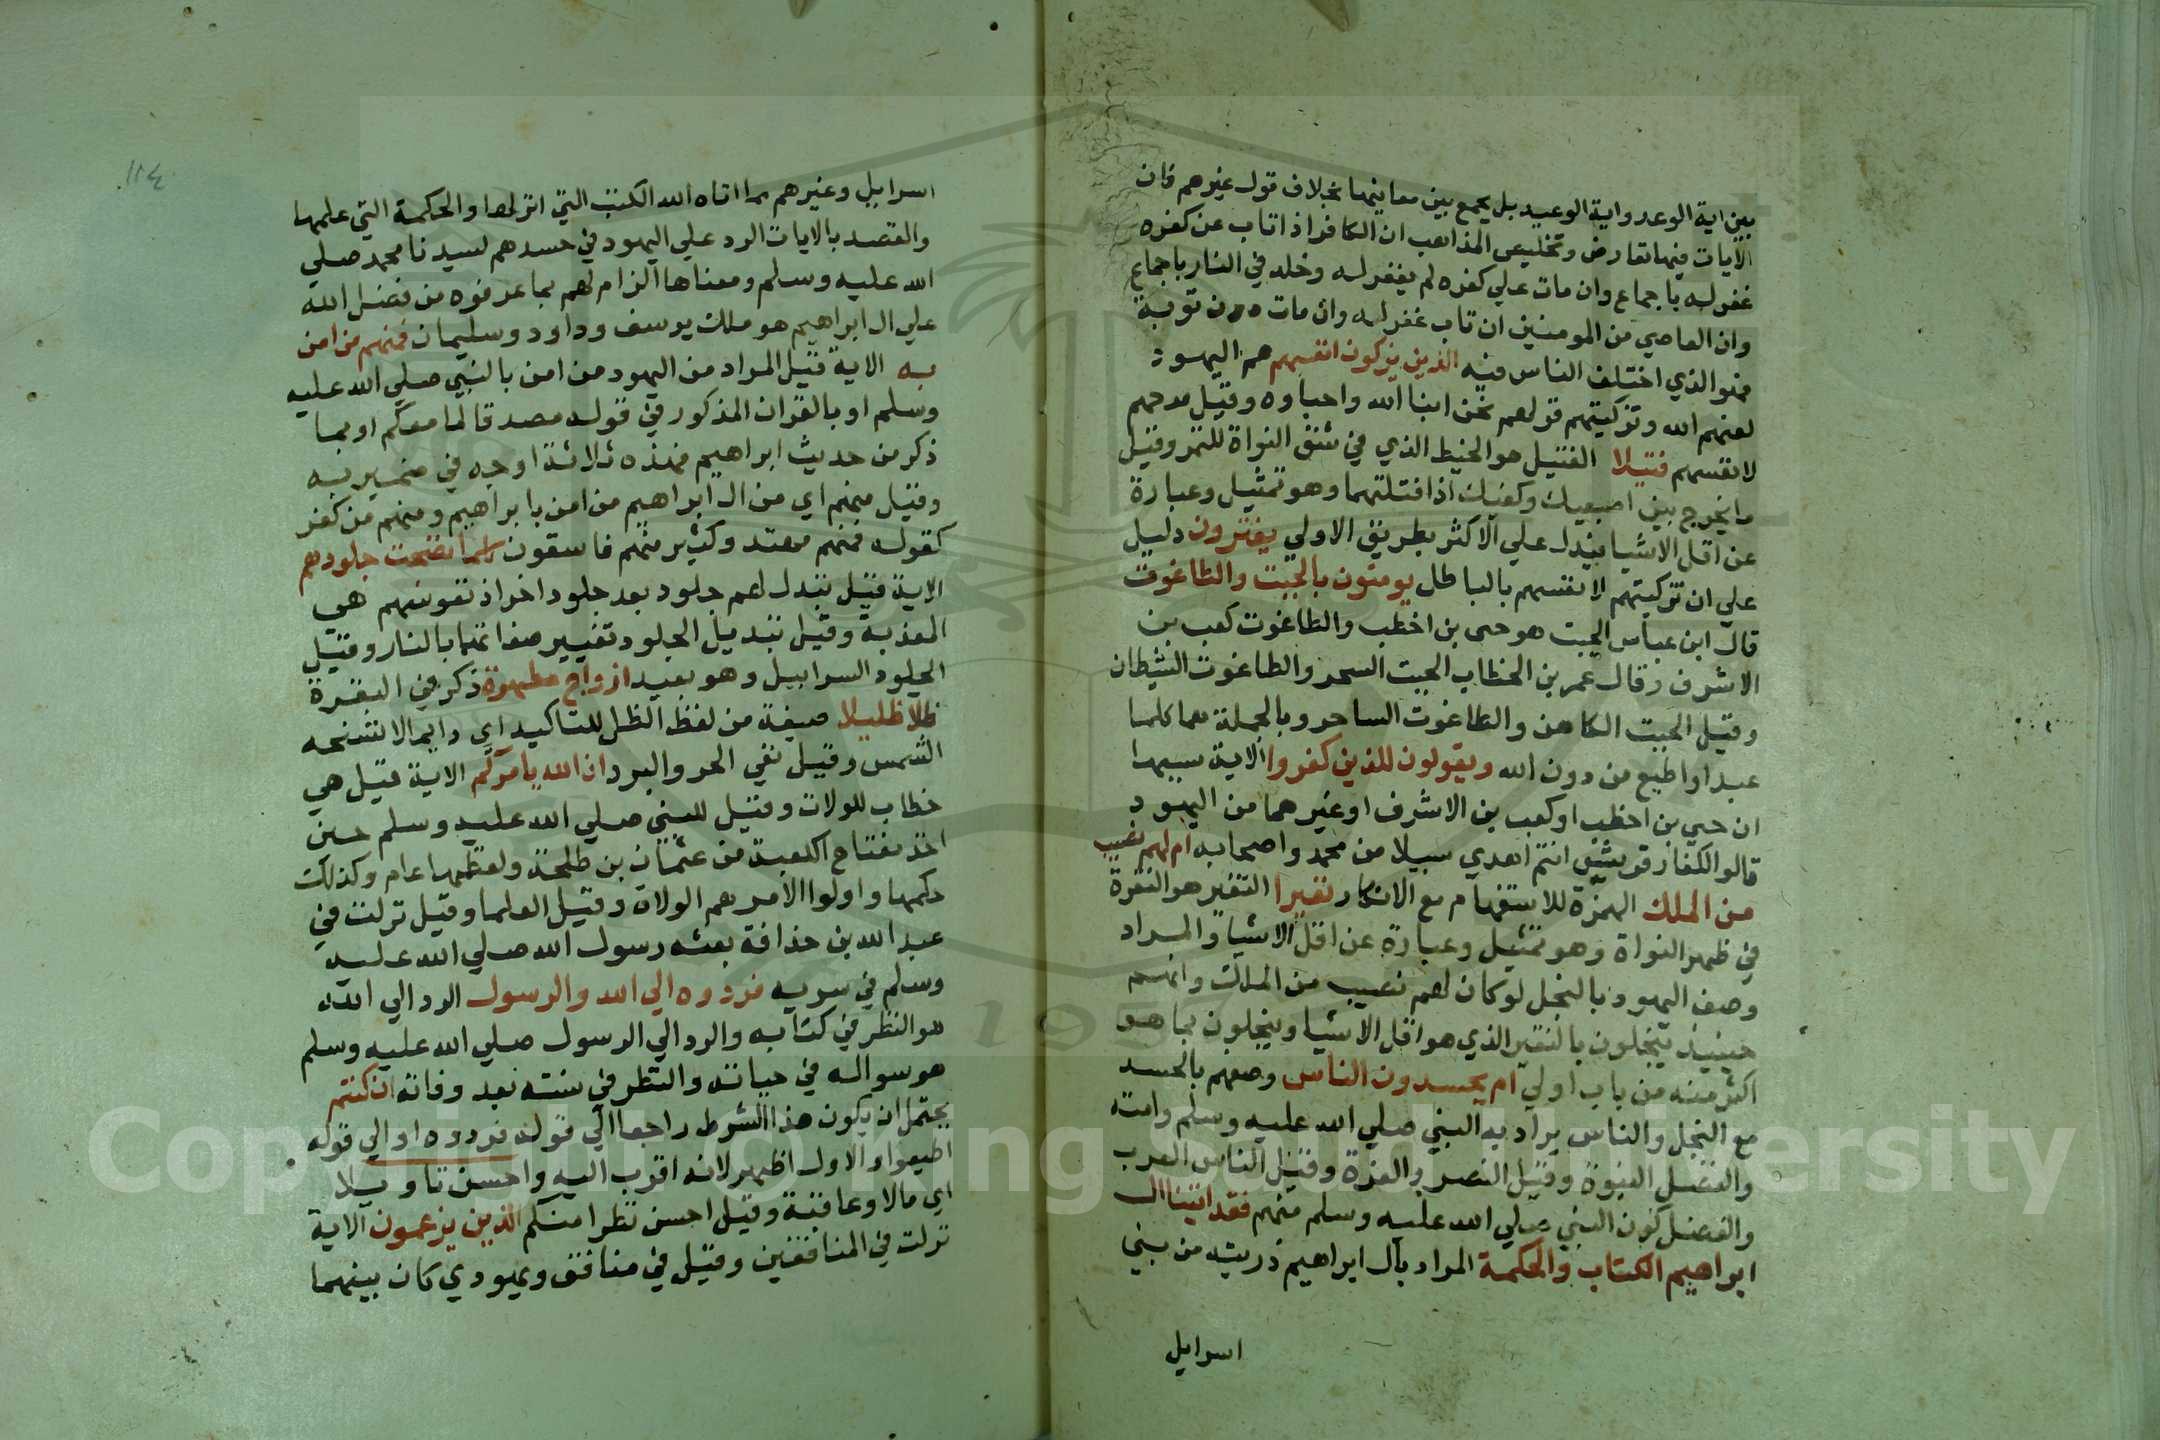 بين اية الوعد واية الوعيد بل يجمع بين معانيها بخلاف قول غيرهم فان
الايات فيها تعارض وتخليص المذاهب ان الكافر اذا تاب عن كفره
غفر له باجماع وان مات علي كفره لم يغفر له وخلد في النار باجماع
وان العاصي من المومنين ان تاب غفر له وان مات دون توبة
فهو الذي اختلف الناس فيه الذين يزكون انفسهم هم اليهود
لعنهم الله وتزكيتهم قولهم نحن ابنا الله واحباوه وقيل مدحهم
لانفسهم فتيلا الفتيل هو الخيط الذي في شق النواة للتمر وقيل
ما يخرج بين اصبعيك وكفيك اذا فتلتهما وهو تمثيل وعبارة
عن اقل الاشيا فيدل علي الاكثر بطريق الاولي يفترون دليل
علي ان تزكيتهم لانفسهم بالباطل يومنون بالجبت والطاغوت
قال ابن عباس الجبت هو حى بن اخطب والطاغوت كعب بن
الاشرف وقال عمر بن الخطاب الجبت السحر والطاغوت الشيطان
وقيل الجبت الكاهن والطاغوت الساحر وبالجملة هما كلما
عبد او اطيع من دون الله ويقولون للذين كفروا الاية سببها
ان حيي بن اخطب او كعب بن الاشرف او غيرهما من اليهود
قالوا لكفار قريش انتم اهدي سبيلا من محمد واصحابه ام لهم نصيب
من الملك الهمزة للاستفهام مع الانكار نقيرا النقير هو النقرة
في ظهر النواة وهو تمثيل وعبارة عن اقل الاشيا والمراد
وصف اليهود بالبخل لو كان لهم نصيب من الملك وانهم
حينيذ يبخلون بالنقير الذي هو اقل الاشيا ويبخلون بما هو
اكثر منه من باب اولي ام يحسدون الناس وصفهم بالحسد
مع البخل والناس يراد به النبي صلي الله عليه وسلم وامته
والفضل النبوة وقيل النصر والعزة وقيل الناس العرب
والفضل كون النبي صلي الله عليه وسلم منهم فقد اتينا ال
ابراهيم الكتاب والحكمة المراد بآل ابراهيم ذريته من بني
اسرايل
١١٤
اسرايل وغيرهم مما اتاه الله الكتب التي انزلها والحكمة التي علمها
والقصد بالايات الرد علي اليهود في حسدهم لسيدنا محمد صلي
الله عليه وسلم ومعناها الزام لهم بما عرفوه من فضل الله
علي ال ابراهيم هو ملك يوسف وداود وسليمان فمنهم من امن
به الاية قيل المراد من اليهود من امن بالنبي صلي الله عليه
وسلم او بالقران المذكور في قوله مصدقا لما معكم او بما
ذكر من حديث ابراهيم فهذه ثلاثة اوجه في ضمير به
وقيل منهم اي من ال ابراهيم من امن بابراهيم ومنهم من كفر
كقوله فمنهم مهتد وكثير منهم فاسقون كلما نضجت جلودهم
الاية قيل تبدل لهم جلود بعد جلود اخر اذ نفوسهم هي
المعذبة وقيل تبديل الجلود تغيير صفاتها بالنار وقيل
الجلود السرابيل وهو بعيد ازواج مطهرة ذكر في البقرة
ظلا ظليلا صيغة من لفظ الظل للتاكيد اي دايم الا تنسخه
الشمس وقيل نفي الحر والبرد ان الله يامركم الاية قيل هي
خطاب للولات وقيل للنبي صلي الله عليه وسلم حين
اخذ مفتاح الكعبة من عثمان بن طلحة ولفظها عام وكذلك
حكمها واولوا الامر هم الولاة وقيل العلما وقيل نزلت في
عبد الله بن حذافة بعثه رسول الله صلي الله عليه
وسلم في سريه فردوه الي الله والرسول الرد الي الله
هو النظر في كتابه والرد الي الرسول صلي الله عليه وسلم
هو سواله في حياته والنظر في سنته بعد وفاته ان كنتم
يحتمل ان يكون هذا الشرط راجعا الي قوله فردوه او الي قوله
اطيعوا والاول اظهر لانه اقرب اليه واحسن تاويلا
اي مالا وعاقبة وقيل احسن نظرا منكم الذين يزعمون الاية
نزلت في المنافقين وقيل في منافق ويهودي كان بينهما
Copyright © King Saud University
1957